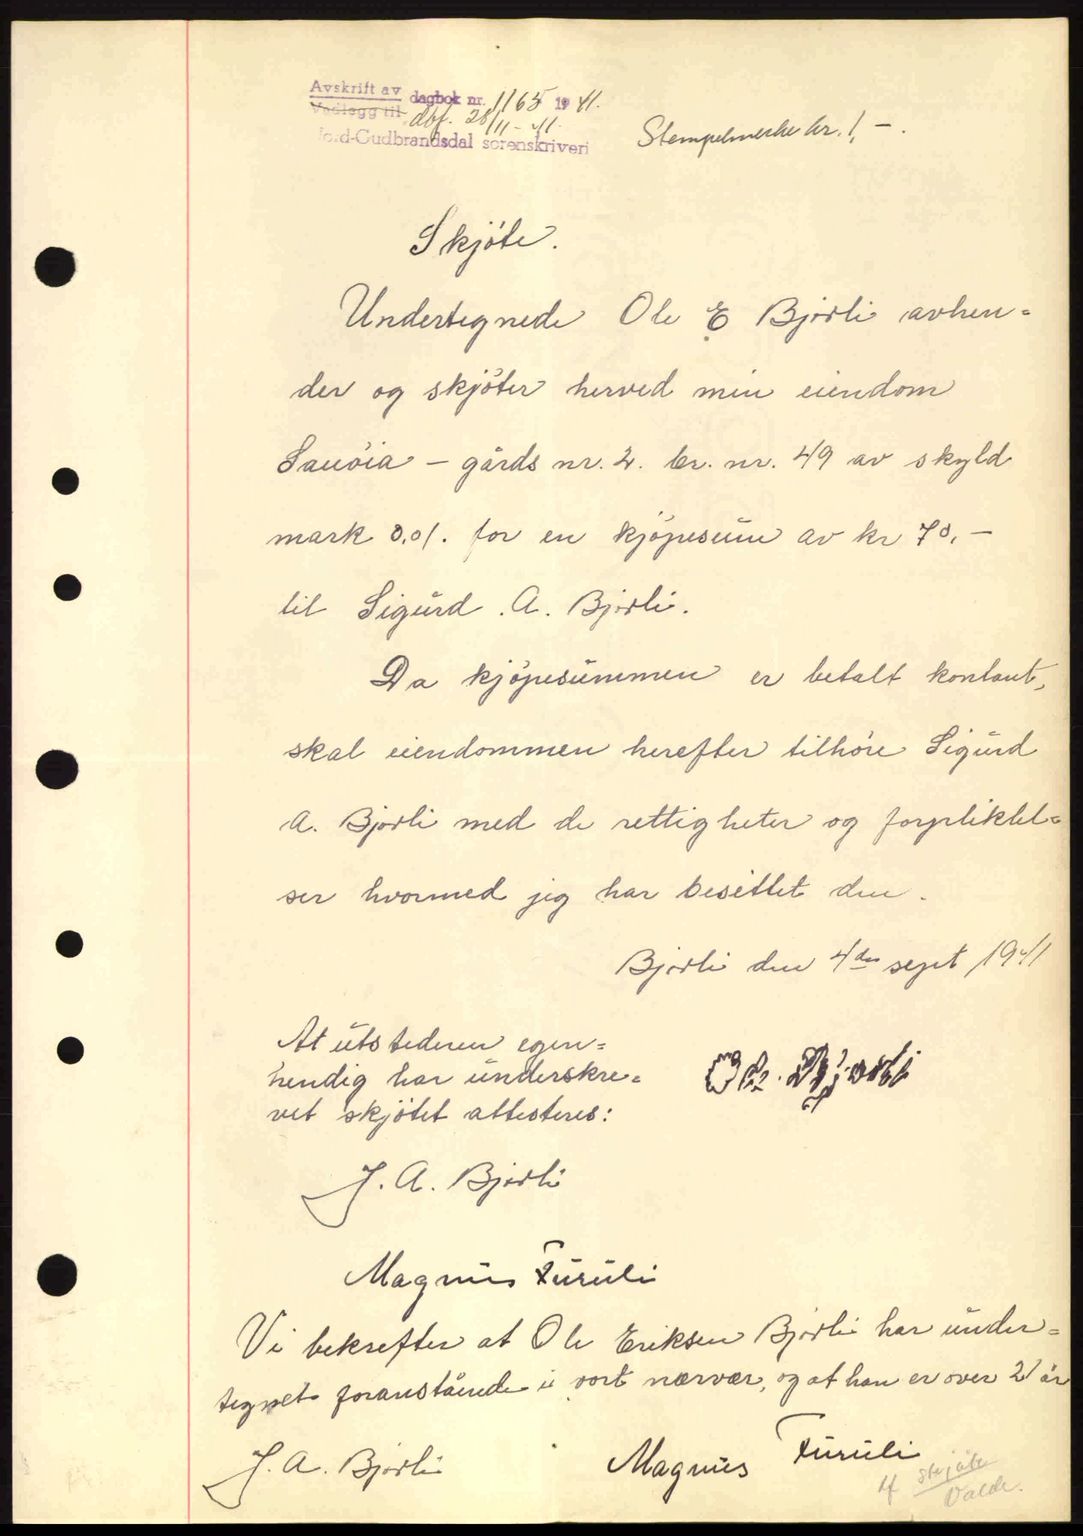 Avskrift av dagbok nr. 1165 1941.
Vedlegg til dbf. 28/11-41.
ord-Gudbrandsdal sorenskriveri
Stempelmerke kr. 1,-.
Skjöte.
Undertegnede Ole E Bjorli avhen=
der og skjöter herved min eiendom
– gårds nr. 2. br. nr. 49 av skyld
mark 0,01. for en kjöpesum av kr 70,-
til Sigurd A. Bjorli.
Da kjöpesummen er betalt kontant,
skal eiendommen herefter tilhöre Sigurd
A. Bjorli med de rettigheter og forpliktel=
ser hvormed jeg har besittet den.
Bjorli den 4de sept 1941
At utstederen egen=
hendig har underskre=
vet skjötet attesteres:
Ole. Bjorli
J. A. Bjorli
Magnus Furuli
Vi bekrefter at Ole Eriksen Bjorli har under=
tegnet foranstående i vort nærvær, og at han er over 21 år
J. A. Bjorli
Magnus Furuli
skjöte